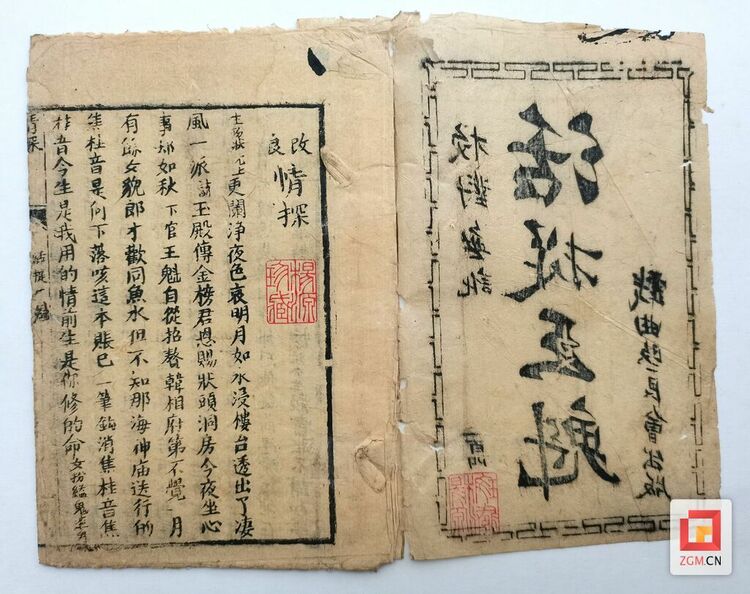 戲曲改良會出版
活捉王魁
校對無訛
改良
情探
更闌淨夜色衰明月如水浸樓台透出了淒
風一派詩玉殿傳金榜君恩賜狀頭洞房今夜坐心
事却如秋 下官王魁自從招贅韓相府第不覺一月
有餘女貌郎才歡同魚水但不知那海神庙送行的
焦桂音是何下落咳這本賬已一筆鈎消焦桂音焦
桂音今生是我用的情前生是你修的命
情探
活捉
ZGM.CN